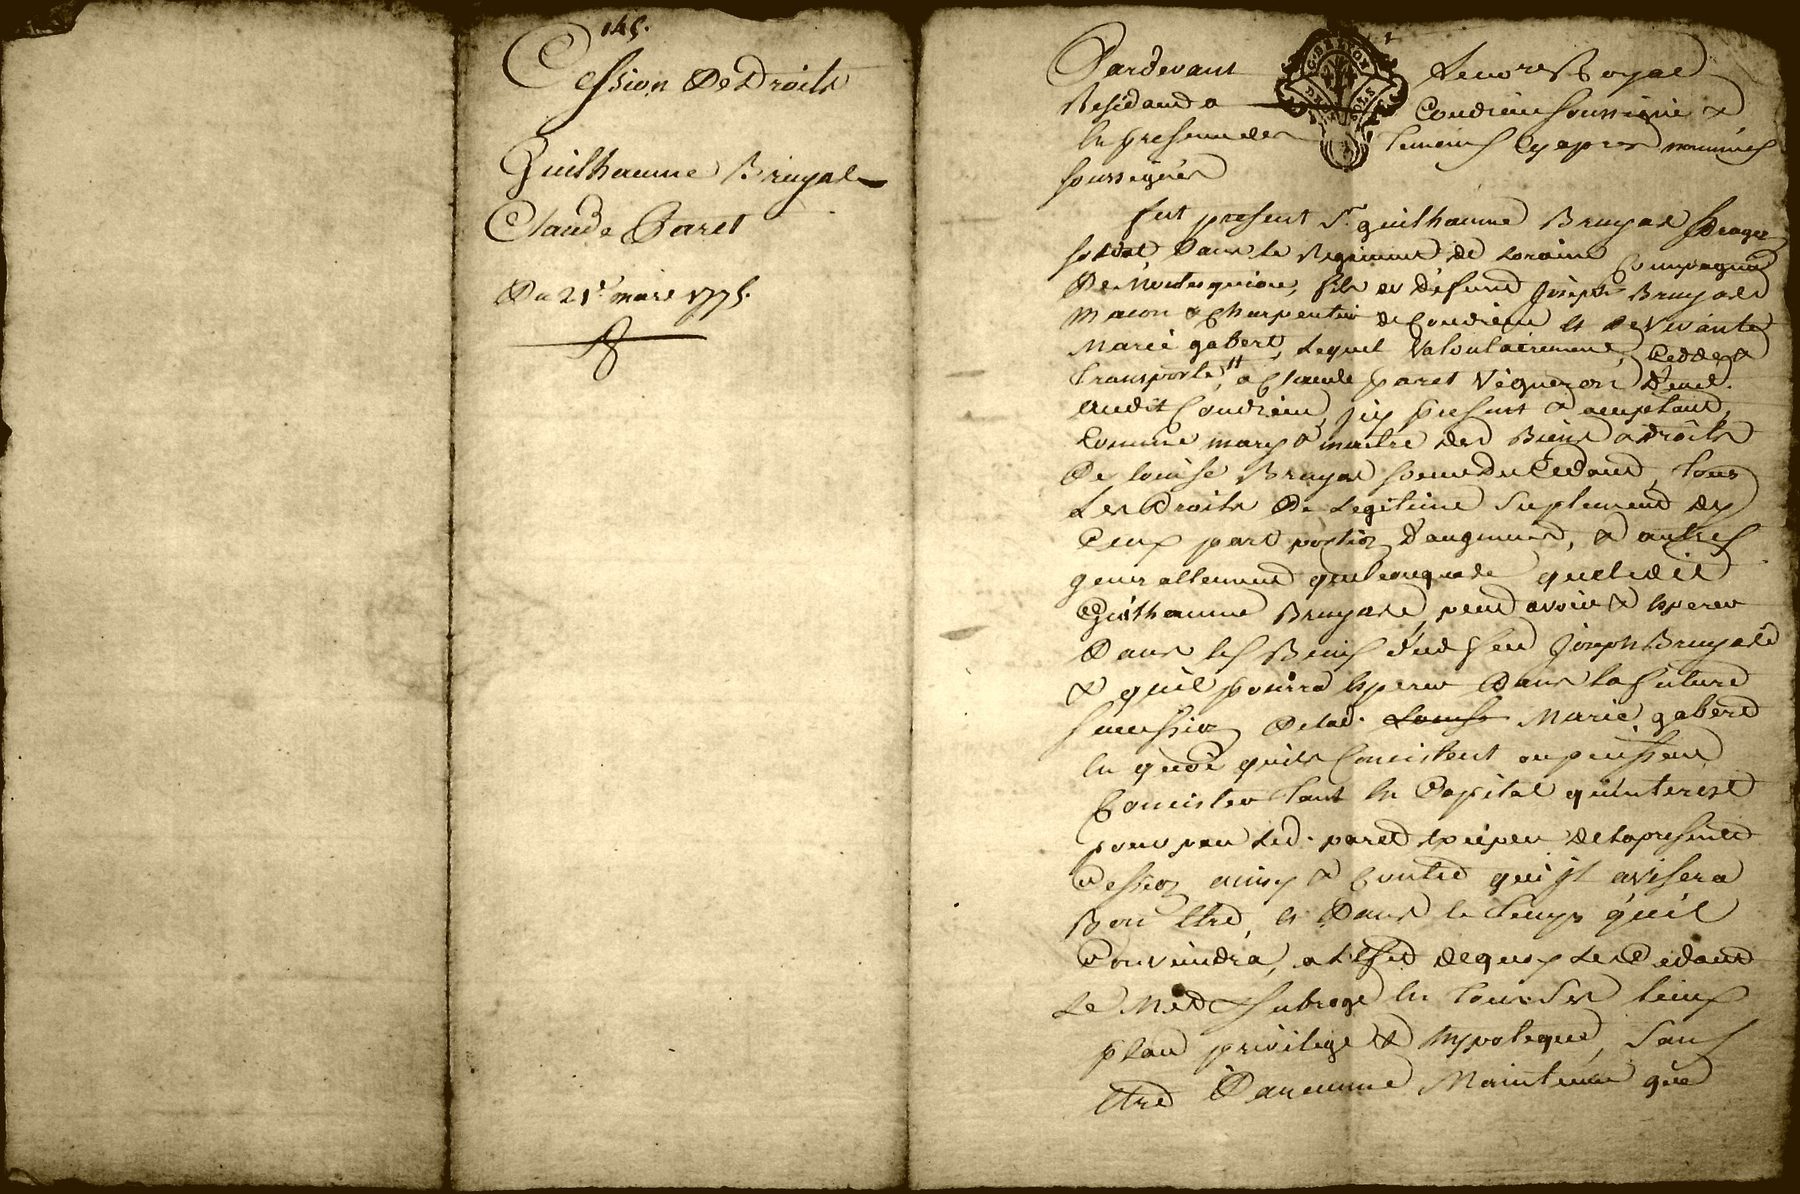 145.
Cession De Droits
Guilhaume Bruyas
Claude Paret
Du 21e mars 1775.
Pardevant Le no.re Royal
Residand a Condrieu soussigné &
En presence des temoins Cy apres nommés
soussignés
fut present Sr. guilhaume Bruyas
soldat Dans le Regiment de Loraine Compagnie
De Montesquiou, fils de défund Joseph Bruyas
Macon & Charpentier de Condrieu et de Vivante
Marie gabert, Lequel Valontairement, Cedde &
Transporte, a Claude paret Vigneron
audit Condrieu, jcy present & aceptant,
Comme mary & maitre des Biens & droits
De Louise Bruyas soeur du Cedand, tous
Les Droits De Legitime Suplement
part portion D'augment, & autres
generallement quelconques que ledit
Guilhaume Bruyas, peud avoir & Esperer
Dans les Biens dud. feu Joseph Bruyas
& quil pourra Esperer Dans la future
sucession De lad. Louise Marie gabert
En quoi quils Concistent ou puissent
Concister tant En Capital qu'interest
pour par Led. paret de la presente
Cession ainsy & Contre qui Jl avisera
Bon Etre, et Dans le temps quil
Conviendra, a L'effet de quoy Le Cédand
Le Met & subroge En tous ses lieux
place privilege & hypoteque, Sans
Etre D'aucune Maintenue que